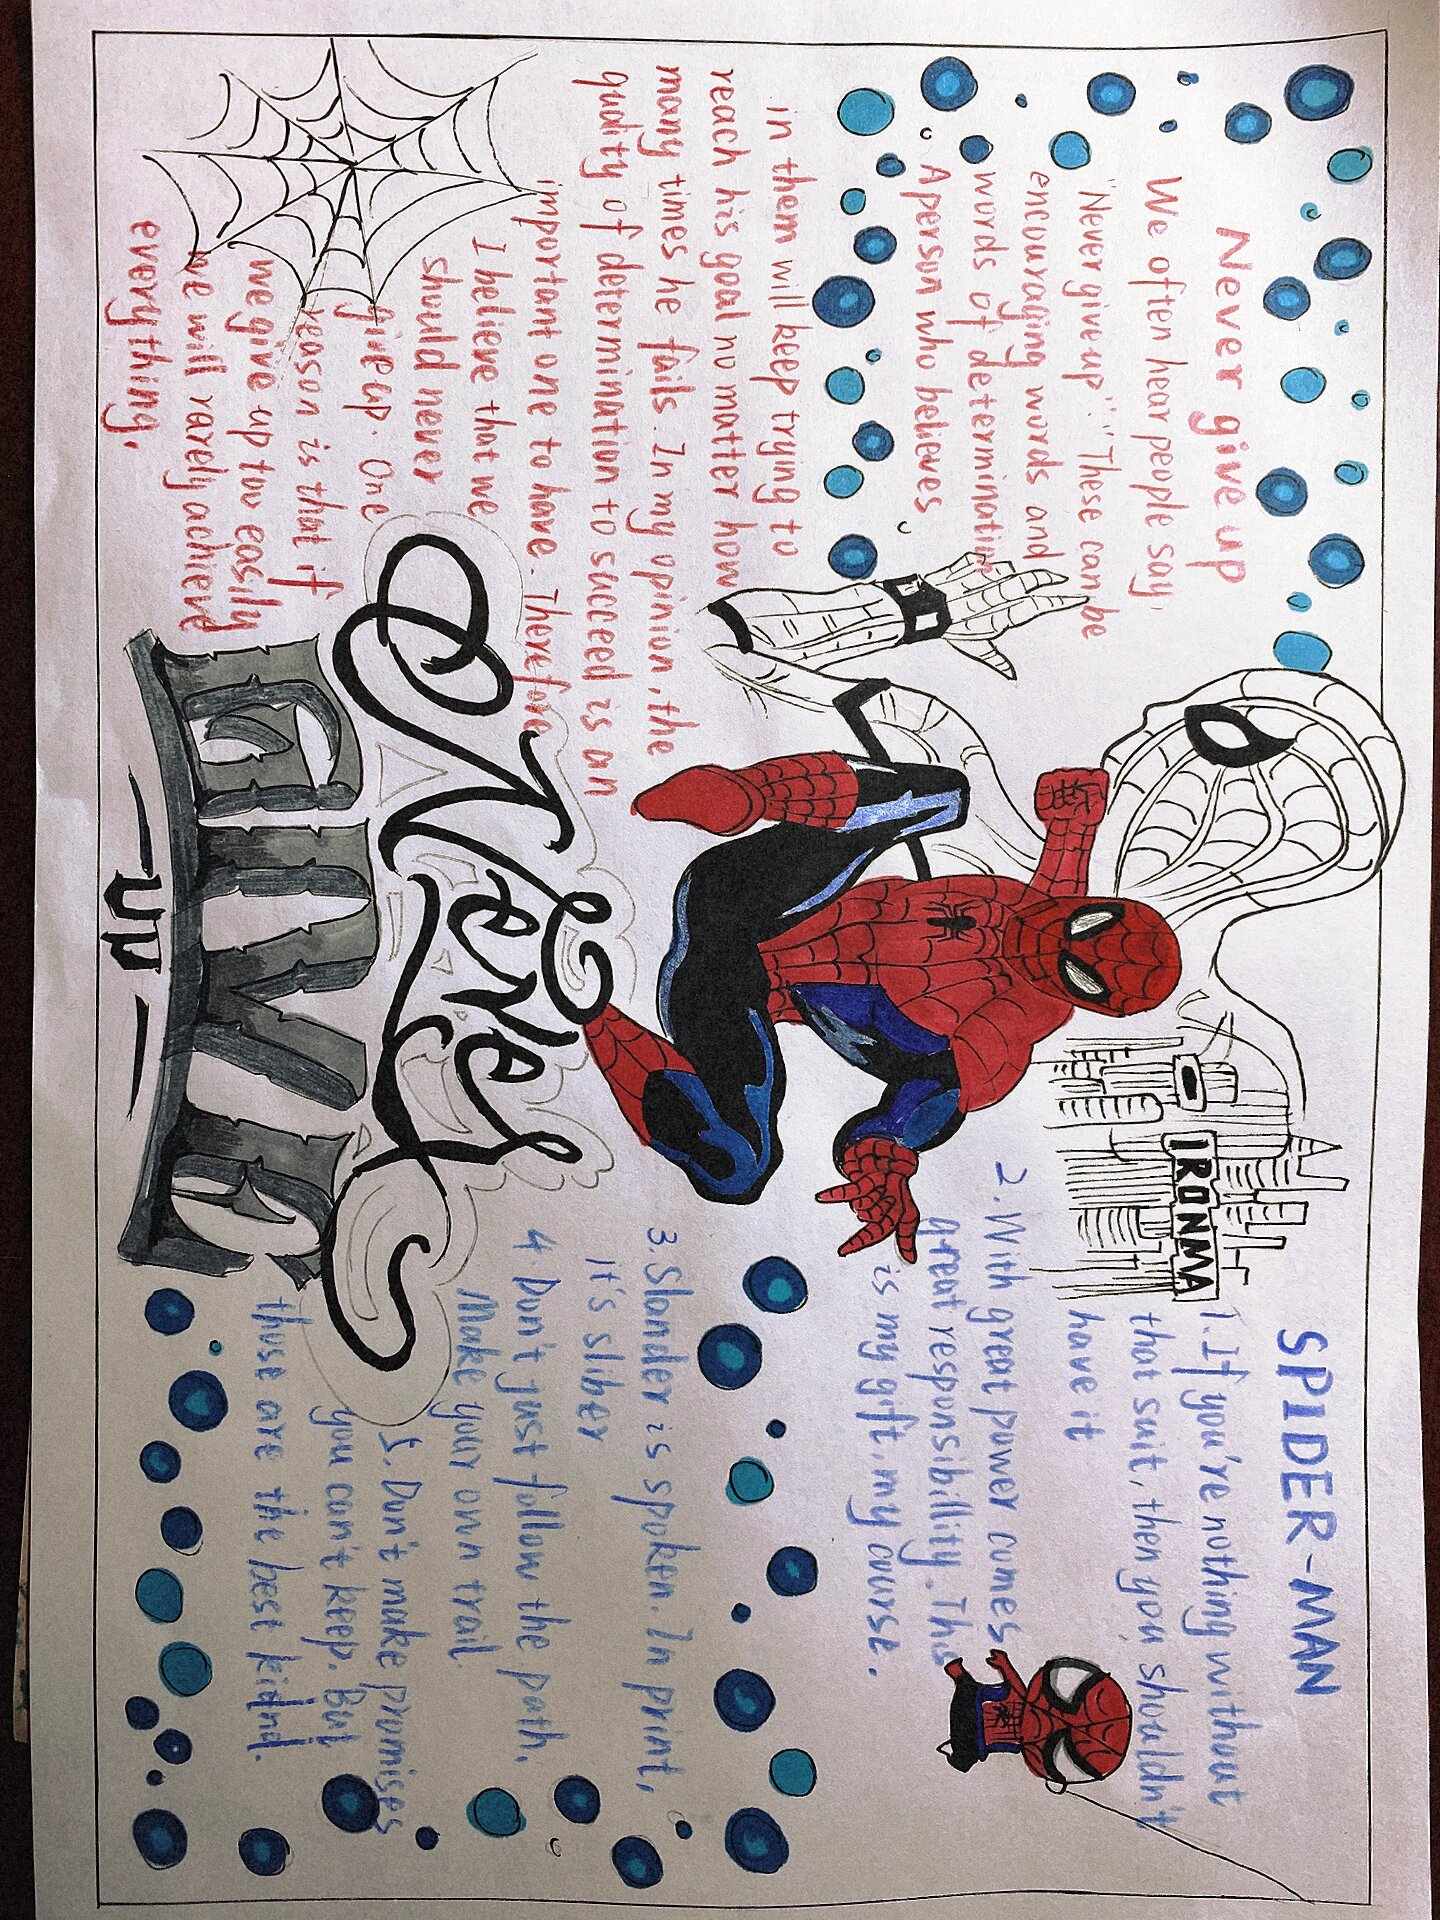 Never give up
We often hear people say,
"Never give up" "These can be
encouraging words and
words of determination
A person who believes
in them will keep trying to
reach his goal no matter how
many times he fails. In my opinion, the
qudity of determination to succeed is an
important one to have. Therefore
I believe that we
should never
give up. One
reason is that if
we give up too easily
we will rarely achieve
everything.
Never
GIVE
UP
IRONMA
SPIDER-MAN
1. If you're nothing without
that suit, then you shouldn't
have it
2. With great power comes
great responsibillity. This
is my gift. my course.
3. Slander is spoken. In print,
it's sliber
4 Don't just follow the path,
Make your own trail.
5. Don't make promises
you can't keep. But
those are the best